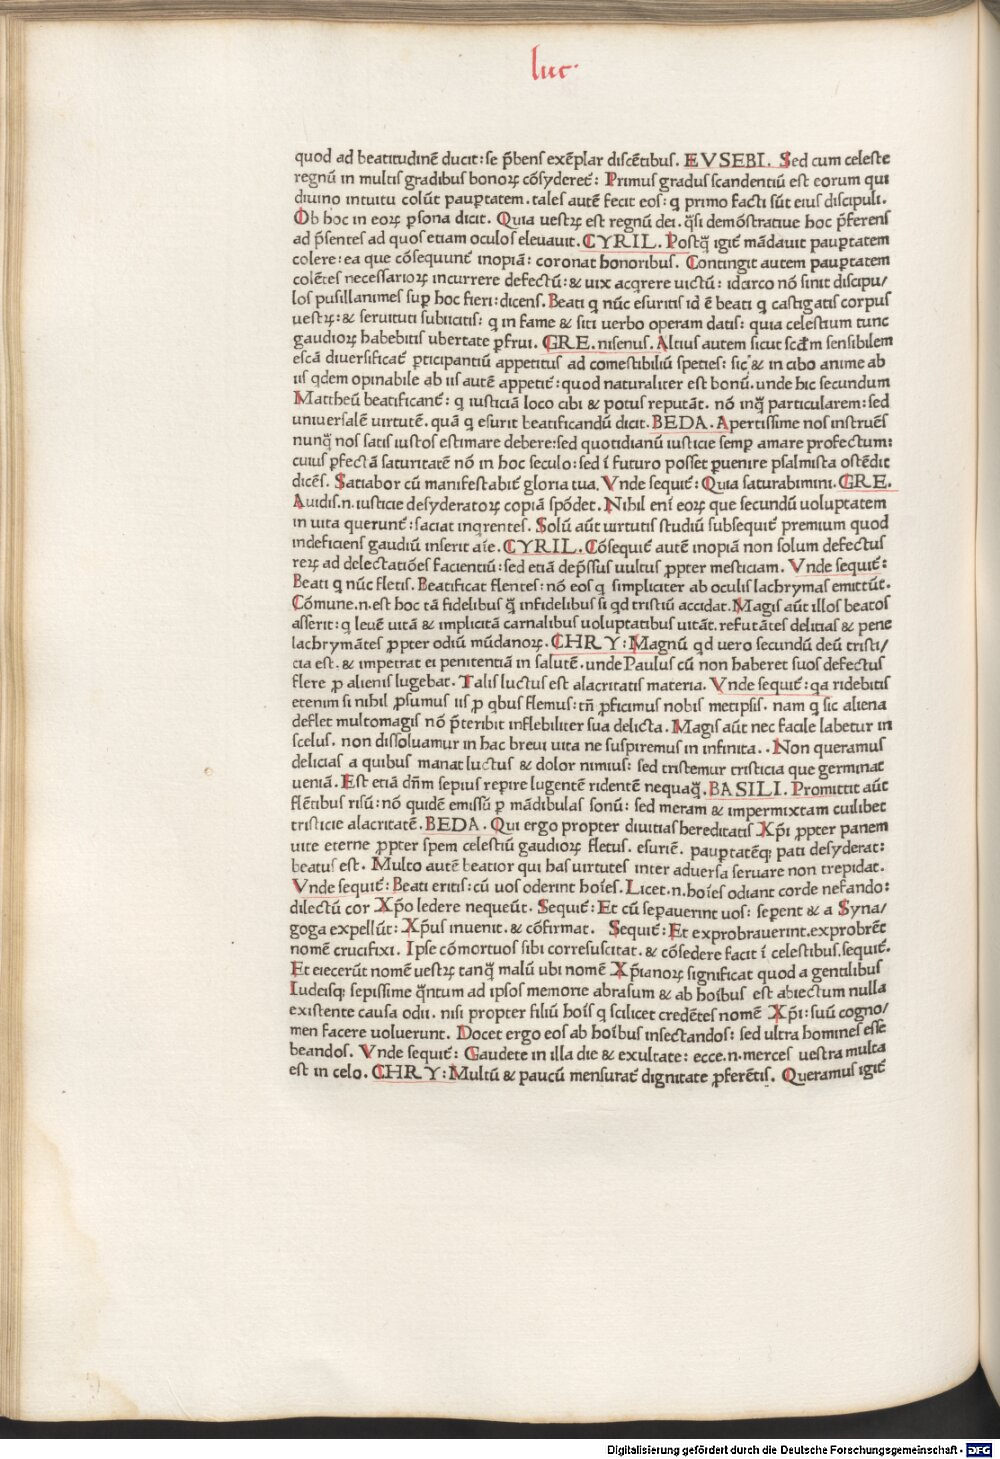 luc·
quod ad beatitudinē ducit: se p̄bens exēplar discētibus. EVSEBI. Sed cum celeste
regnū in multis gradibus bonoꝝ cōsyderet᷑: Primus gradus scandentiū est eorum qui
diuino intuitu colūt paup̱tatem. tales autē fecit eos: q primo facti sūt eius discipuli.
Ob hoc in eoꝝ p̱sona dicit. Quia uestꝝ est regnū dei. q̄si demōstratiue hoc p̄ferens
ad p̄sentes ad quos etiam oculos eleuauit. CYRIL. Postq̄ igit᷑ mādauit paup̱tatem
colere: ea que cōsequunt᷑ inopiā: coronat honoribus. Contingit autem paup̱tatem
colētes necessarioꝝ incurrere defectū: & uix acqrere uictū: idcirco nō sinit discipu/
los pusillanimes sup̱ hoc fieri: dicens. Beati q nūc esuritis id ē beati q castigatis corpus
uestꝝ: & seruituti subiicitis: q in fame & siti uerbo operam datis: quia celestium tunc
gaudioꝝ habebitis ubertate p̱frui. GRE. nisenus. Altius autem sicut scd̄m sensibilem
escā diuersificat᷑ p̱ticipantiū appetitus ad comestibiliū species: sic & in cibo anime ab
iis qdem opinabile ab iis autē appetit᷑: quod naturaliter est bonū. unde hic secundum
Mattheū beatificant᷑: q iusticiā loco cibi & potus reputāt. nō inq̄ particularem: sed
uniuersalē uirtutē. quā q esurit beatificandū dicit. BEDA. Apertissime nos instruēs
nunq̄ nos satis iustos estimare debere: sed quotidianū iusticie semp̱ amare profectum:
cuius p̱fectā saturitatē nō in hoc seculo: sed ī futuro posset p̱uenire psalmista ostēdit
dicēs. Satiabor cū manifestabit᷑ gloria tua. Vnde sequit᷑: Quia saturabimini. GRE.
Auidis .n. iusticie desyderatoꝝ copiā spōdet. Nihil eni᷑ eoꝝ que secundū uoluptatem
in uita querunt᷑: saciat inqrentes. Solū aūt uirtutis studiū subsequit᷑ premium quod
indeficiens gaudiū inserit aīe. CYRIL. Cōsequit᷑ autē inopiā non solum defectus
reꝝ ad delectatiōes facientiū: sed etiā dep̄ssus uultus ꝓpter mesticiam. Vnde sequit᷑:
Beati q nūc fletis. Beatificat flentes: nō eos q simpliciter ab oculis lachrymas emittūt.
Cōmune .n. est hoc tā fidelibus q̄ infidelibus si qd tristiū accidat. Magis aūt illos beatos
asserit: q leuē uitā & implicitā carnalibus uoluptatibus uitāt. refutātes delitias & pene
lachrymātes ꝓpter odiū mūdanoꝝ. CHRY: Magnū qd uero secundū deū tristi/
cia est. & impetrat ei penitentiā in salutē. unde Paulus cū non haberet suos defectus
flere ꝓ alienis lugebat. Talis luctus est alacritatis materia. Vnde sequit᷑: qa ridebitis
etenim si nihil ꝓsumus iis ꝓ qbus flemus: tn̄ ꝓficimus nobis metipsis. nam q sic aliena
deflet multomagis nō p̄teribit inflebiliter sua delicta. Magis aūt nec facile labetur in
scelus. non dissoluamur in hac breui uita ne suspiremus in infinita.. Non queramus
delicias a quibus manat luctus & dolor nimius: sed tristemur tristicia que germinat
ueniā. Est etiā dn̄m sepius repire lugentē ridentē nequaq̄. BASILI. Promittit aūt
flētibus risū: nō quidē emissū p̱ mādibulas sonū: sed meram & impermixtam cuilibet
tristicie alacritatē. BEDA. Qui ergo propter diuitias hereditatis Xp̄i ꝓpter panem
uite eterne ꝓpter spem celestiū gaudioꝝ fletus. esuriē. paup̱tatēq; pati desyderat:
beatus est. Multo autē beatior qui has uirtutes inter aduersa seruare non trepidat.
Vnde sequit᷑: Beati eritis: cū uos oderint hoīes. Licet .n. hoīes odiant corde nefando:
dilectū cor Xp̄o ledere nequeūt. Sequit᷑: Et cū sep̱auerint uos: sep̱ent & a Syna/
goga expellūt: Xp̄us inuenit. & cōfirmat. Sequit᷑: Et exprobrauerint. exprobrēt
nomē crucifixi. Ipse cōmortuos sibi corresuscitat. & cōsedere facit ī celestibus. sequit᷑.
Et eiecerūt nomē uestꝝ tanq̄ malū ubi nomē Xp̄ianoꝝ significat quod a gentilibus
Iudeisq; sepissime q̄ntum ad ipsos memorie abrasum & ab hoībus est abiectum nulla
existente causa odii. nisi propter filiū hoīs q scilicet credētes nomē Xp̄i: suū cogno/
men facere uoluerunt. Docet ergo eos ab hoībus insectandos: sed ultra homines esse
beandos. Vnde sequit᷑: Gaudete in illa die & exultate: ecce .n. merces uestra multa
est in celo. CHRY: Multū & paucū mensurat᷑ dignitate ꝓferētis. Queramus igit᷑
Digitalisierung gefördert durch die Deutsche Forschungsgemeinschaft - DFG